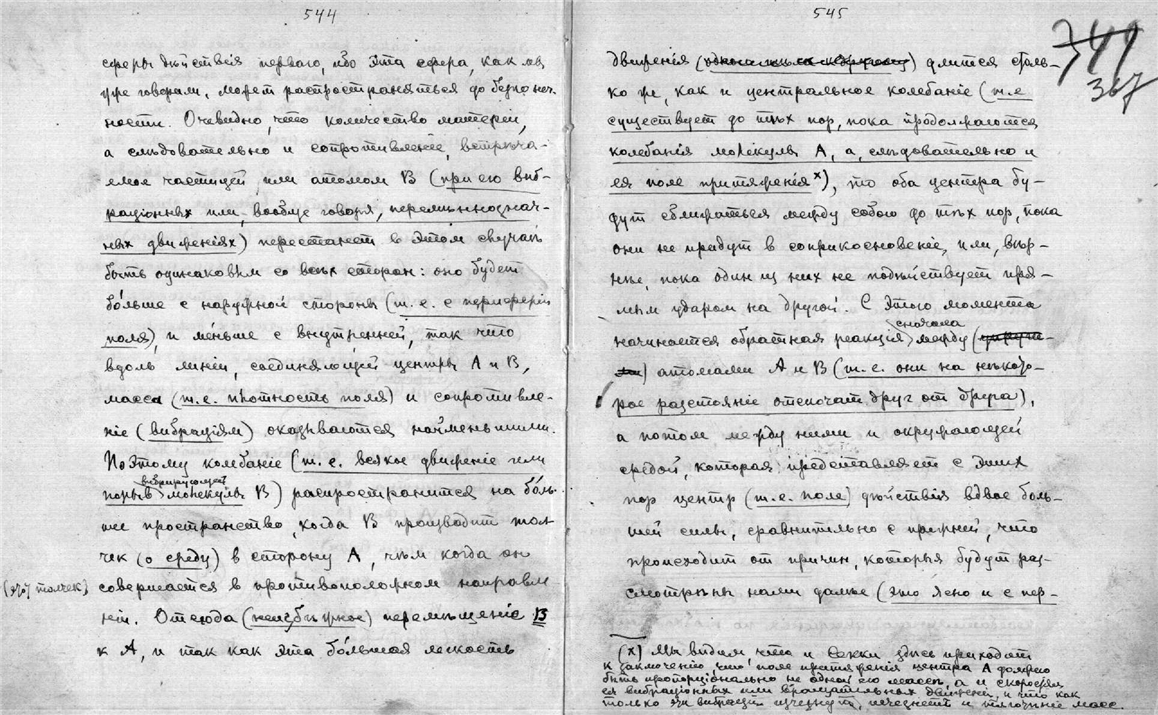 544
сферы дѣйствія перваго, ибо эта сфера, какъ мы
уже говорили, можетъ распространяться до безконеч-
ности. Очевидно, что количество матеріи,
а слѣдовательно и сопротивленіе, встрѣча-
емое частицей или атомомъ В (при его виб-
раціонныхъ или, вообще говоря, перемѣннознач-
ныхъ движеніяхъ) перестанетъ въ этомъ случаѣ
быть одинаковымъ со всѣхъ сторонъ: оно будетъ
бо́льше съ наружной стороны (т. е. съ периферіи
поля), и ме́ньше съ внутренней, такъ что
вдоль линіи, соединяющей центры А и В,
масса (т. е. плотность поля) и сопротивле-
ніе (вибраціямъ) оказываются наименьшими.
Поэтому колебаніе (т. е. всякое движеніе или
порывъ вибрирующей молекулы В) распространится на бо́ль-
шее пространство, когда В производитъ тол-
чекъ (о среду) въ сторону А, чѣмъ когда онъ
(этотъ толчекъ) совершается въ противоположномъ направле-
ніи. Отсюда (неизбѣжное) перемѣщеніе В
къ А, и такъ какъ эта бо́льшая легкость
545
741
367
движенія () длится столь-
ко же, какъ и центральное колебаніе (т. е.
существуетъ до тѣхъ поръ, пока продолжаются
колебанія молекулы А, а, слѣдовательно и
ея поле притяженія ˣ), то оба центра бу-
дутъ сближаться между собою до тѣхъ поръ, пока
они не придутъ въ соприкосновеніе, или, вѣр-
нѣе, пока одинъ изъ нихъ не подѣйствуетъ пря-
мымъ ударомъ на другой. Съ этого момента
начинается обратная реакція сначала между (
) атомами А и В (т. е. они на нѣкото-
рое разстояніе отскочатъ другъ отъ друга),
а потомъ между ними и окружающей
средой, которая представляетъ съ этихъ
поръ центръ (т. е. поле) дѣйствія вдвое боль-
шей силы, сравнительно съ прежней, что
происходитъ отъ причинъ, которыя будутъ раз-
смотрѣны нами дальше (это ясно и съ пер-
(х) Мы видимъ что и Секки здѣсь приходитъ
къ заключенію, что поле притяженія центра А должно
быть пропорціонально не одной его массѣ, а и скоростямъ
ея вибраціонныхъ или вращательныхъ движеній, и что какъ
только эти вибраціи изчезнутъ, исчезнетъ и тяготѣніе массъ.